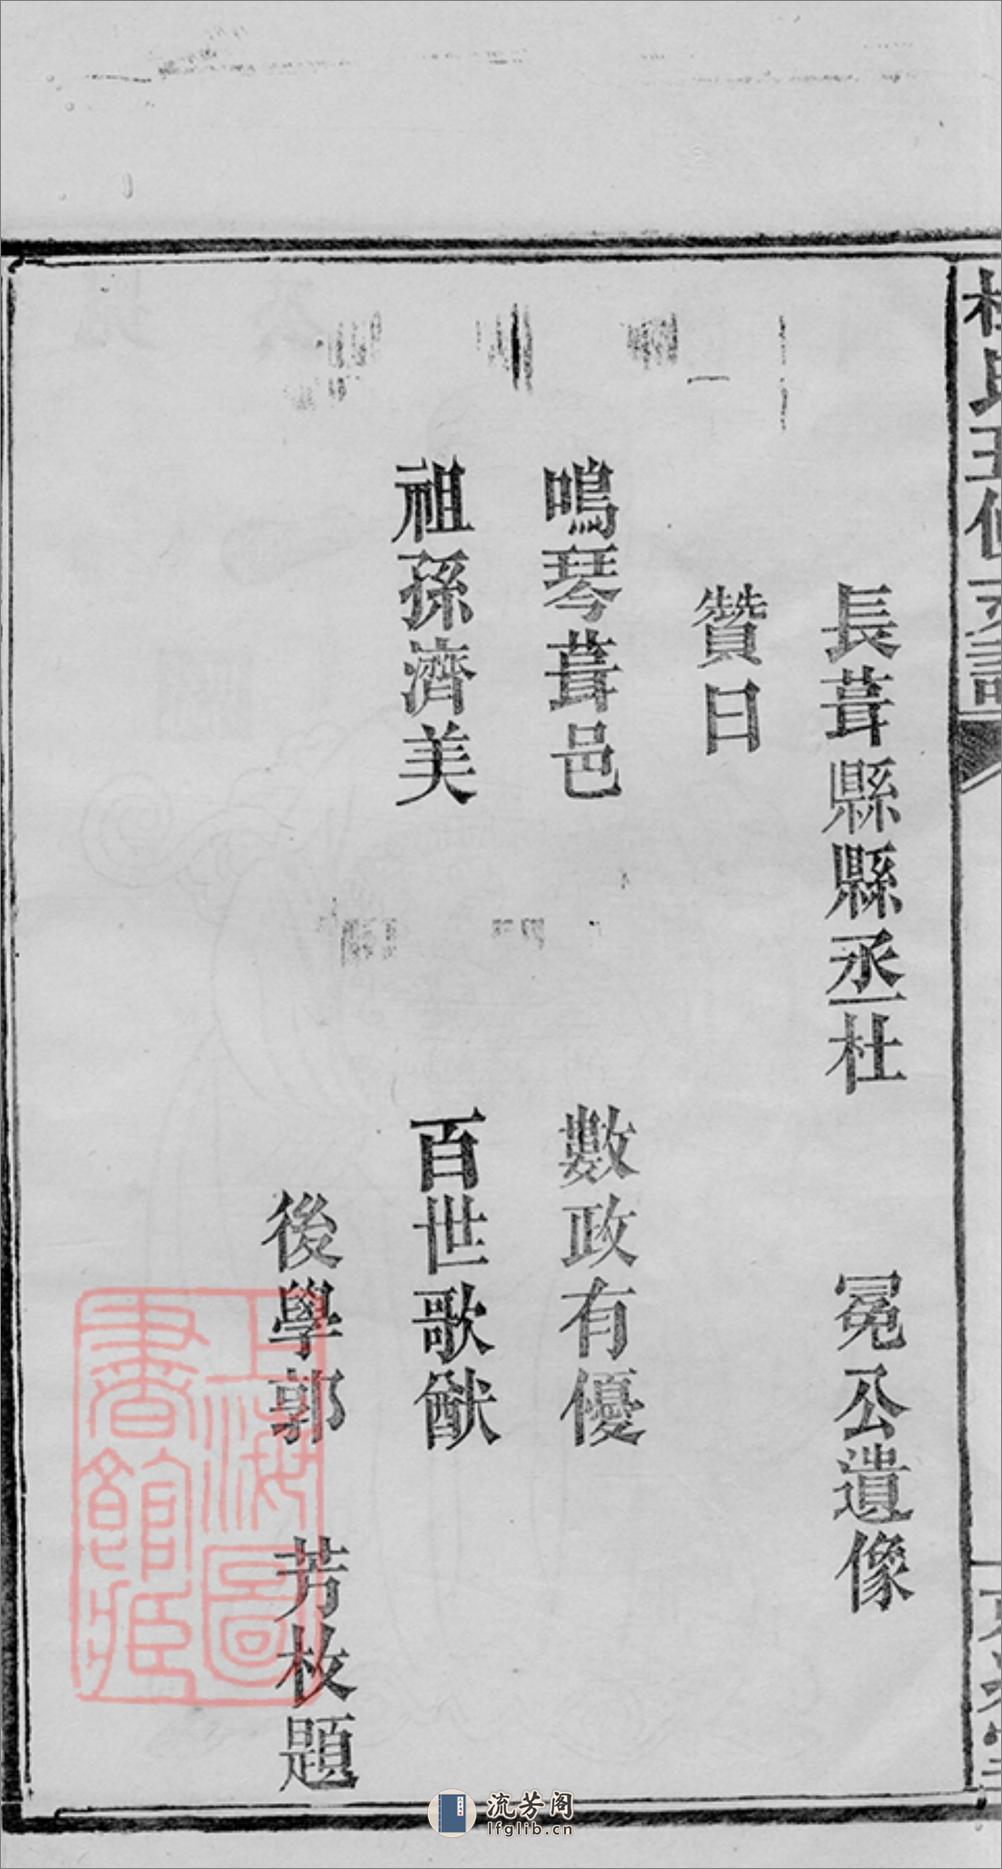 杜氏五修
長葺縣縣丞杜 冕公遺像
贊曰
鳴琴葺邑 數政有優
祖孫濟美 百世歌猷
後學郭 芳枚題
上海圖書館藏
流芳阁
lfglib.cn